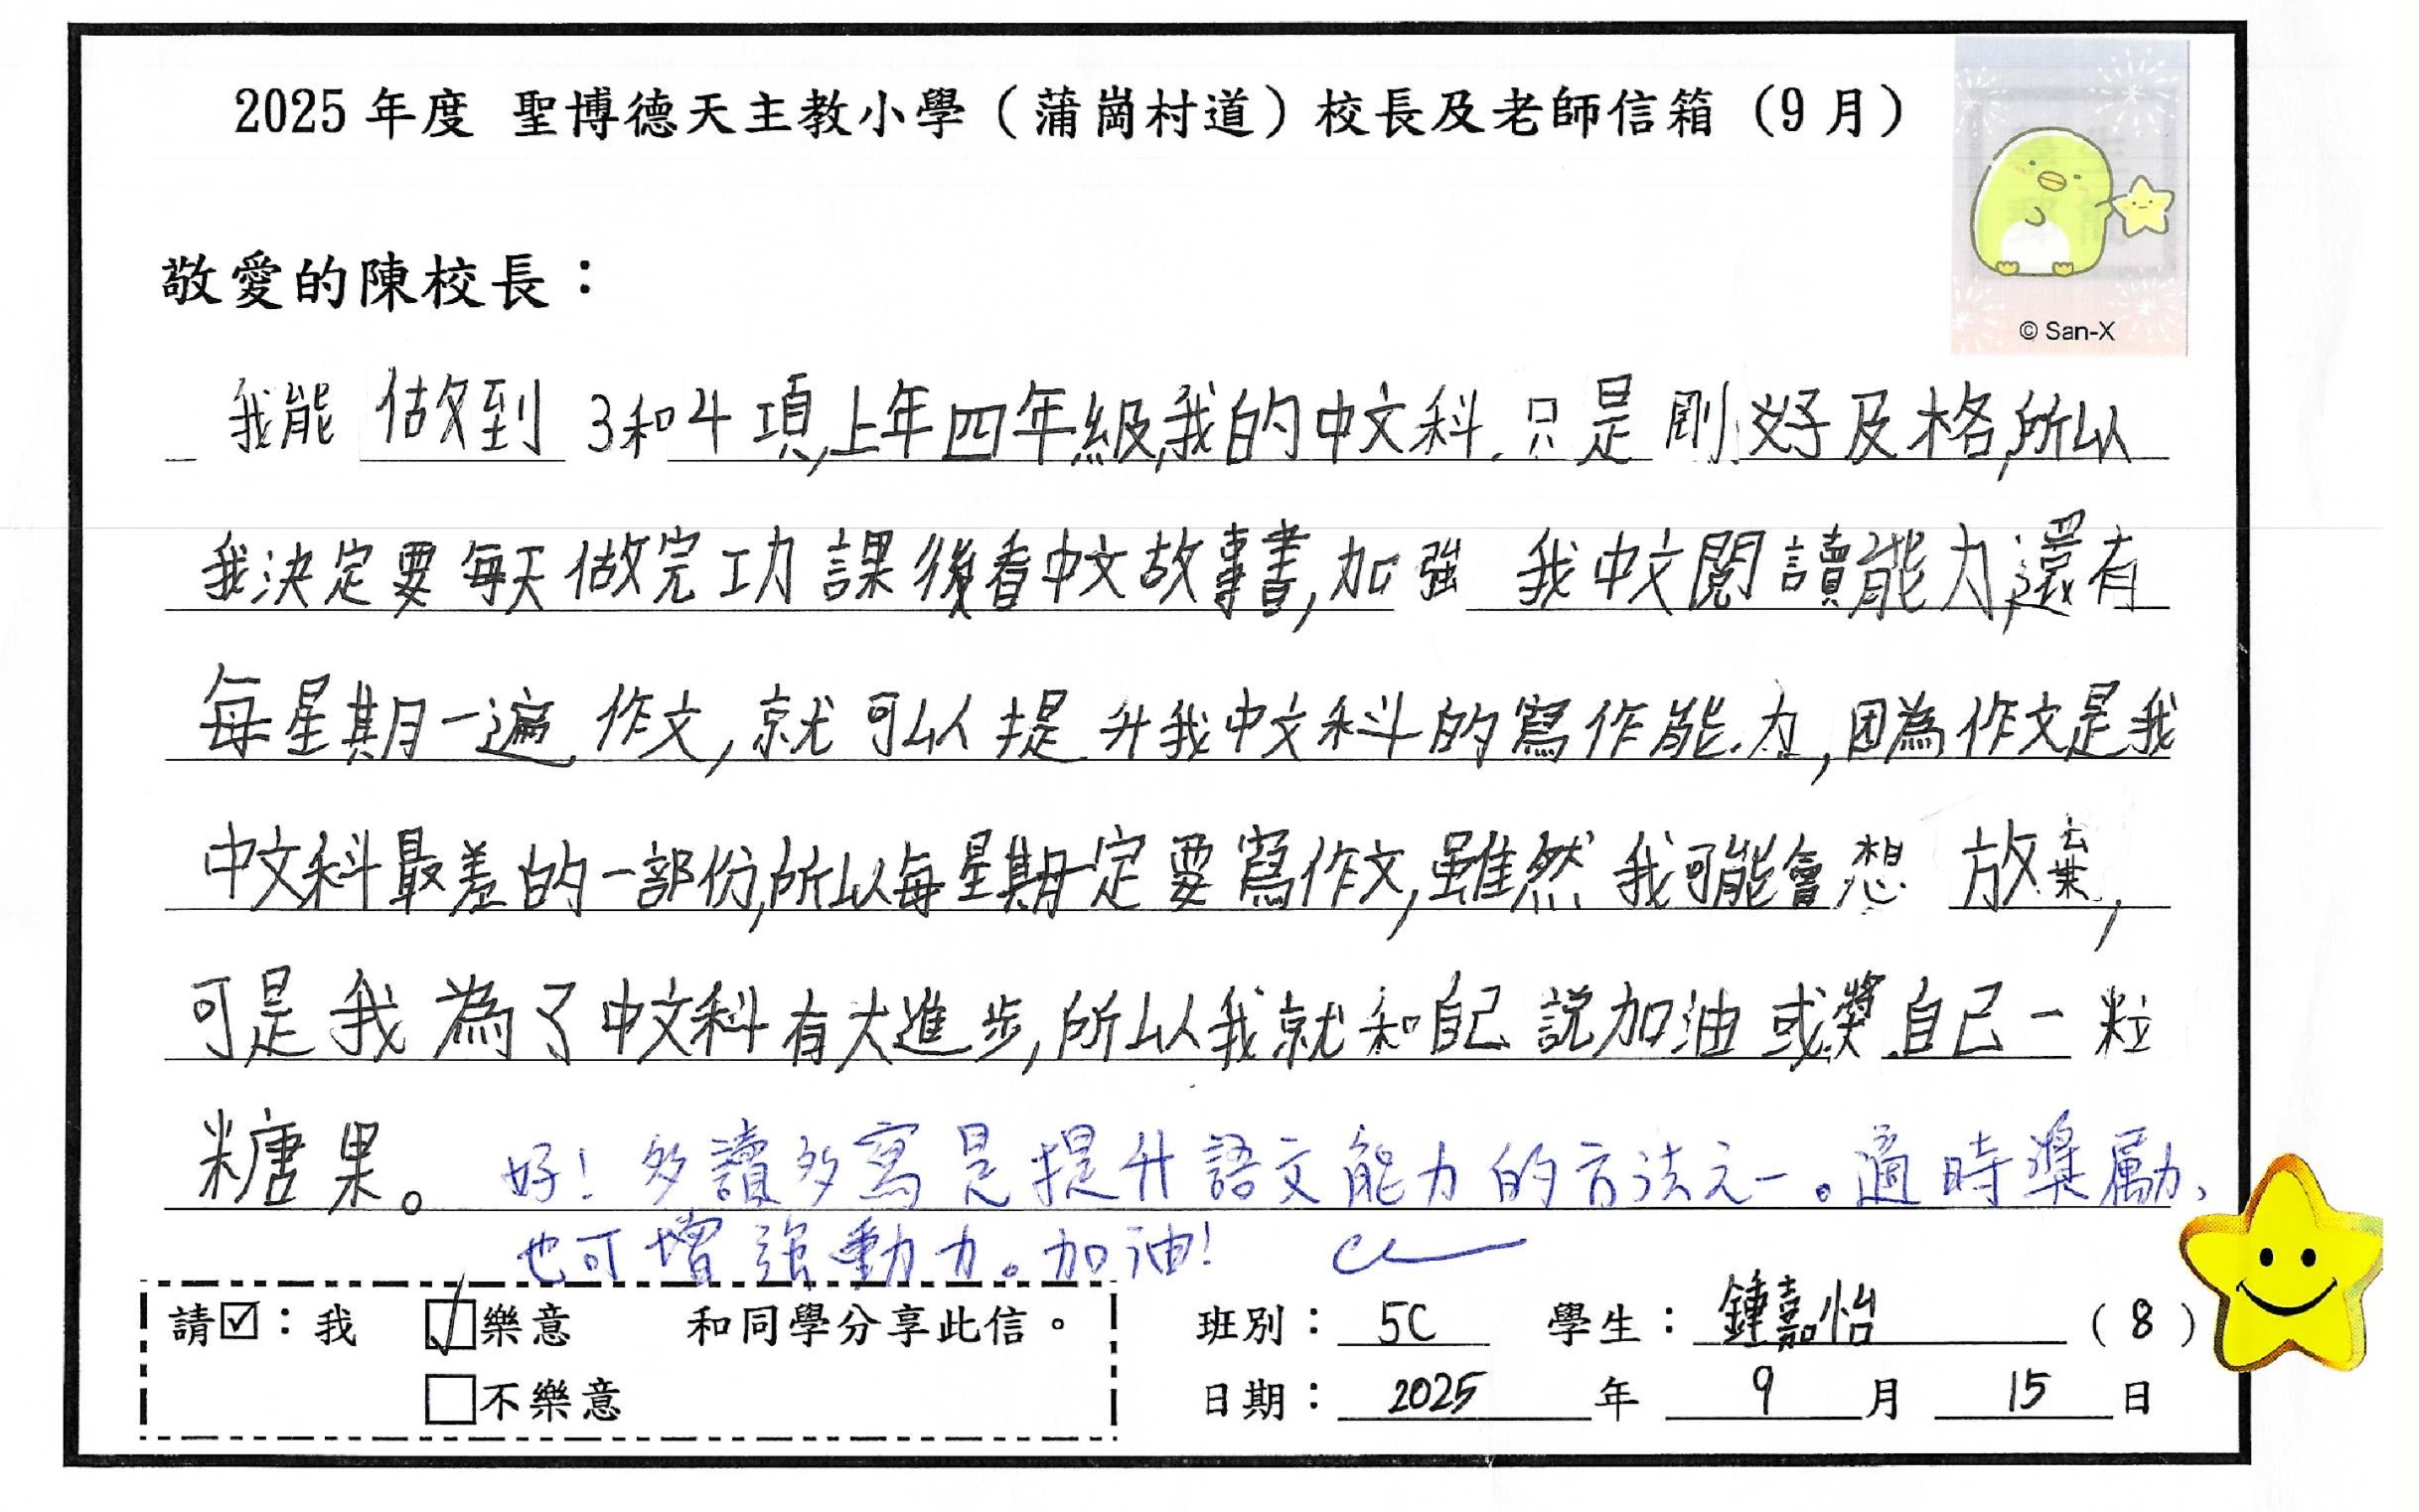 2025 年度 聖博德天主教小學（蒲崗村道）校長及老師信箱（9 月）
© San-X
敬愛的陳校長：
我能做到3和4項,上年四年級,我的中文科只是剛好及格,所以
我決定要每天做完功課後看中文故事書,加強我中文閱讀能力,還有
每星期一遍作文,就可以提升我中文科的寫作能力,因為作文是我
中文科最差的一部份,所以每星期一定要寫作文,雖然我可能會想放棄,
可是我為了中文科有大進步,所以我就和自己說加油或獎自己一粒
糖果。 好！多讀多寫是提升語文能力的方法之一。適時獎勵、
也可增強動力。加油！
請☑：我 ☑樂意 和同學分享此信。 班別：5C 學生：鍾嘉怡（8）
□不樂意 日期：2025年9月15日